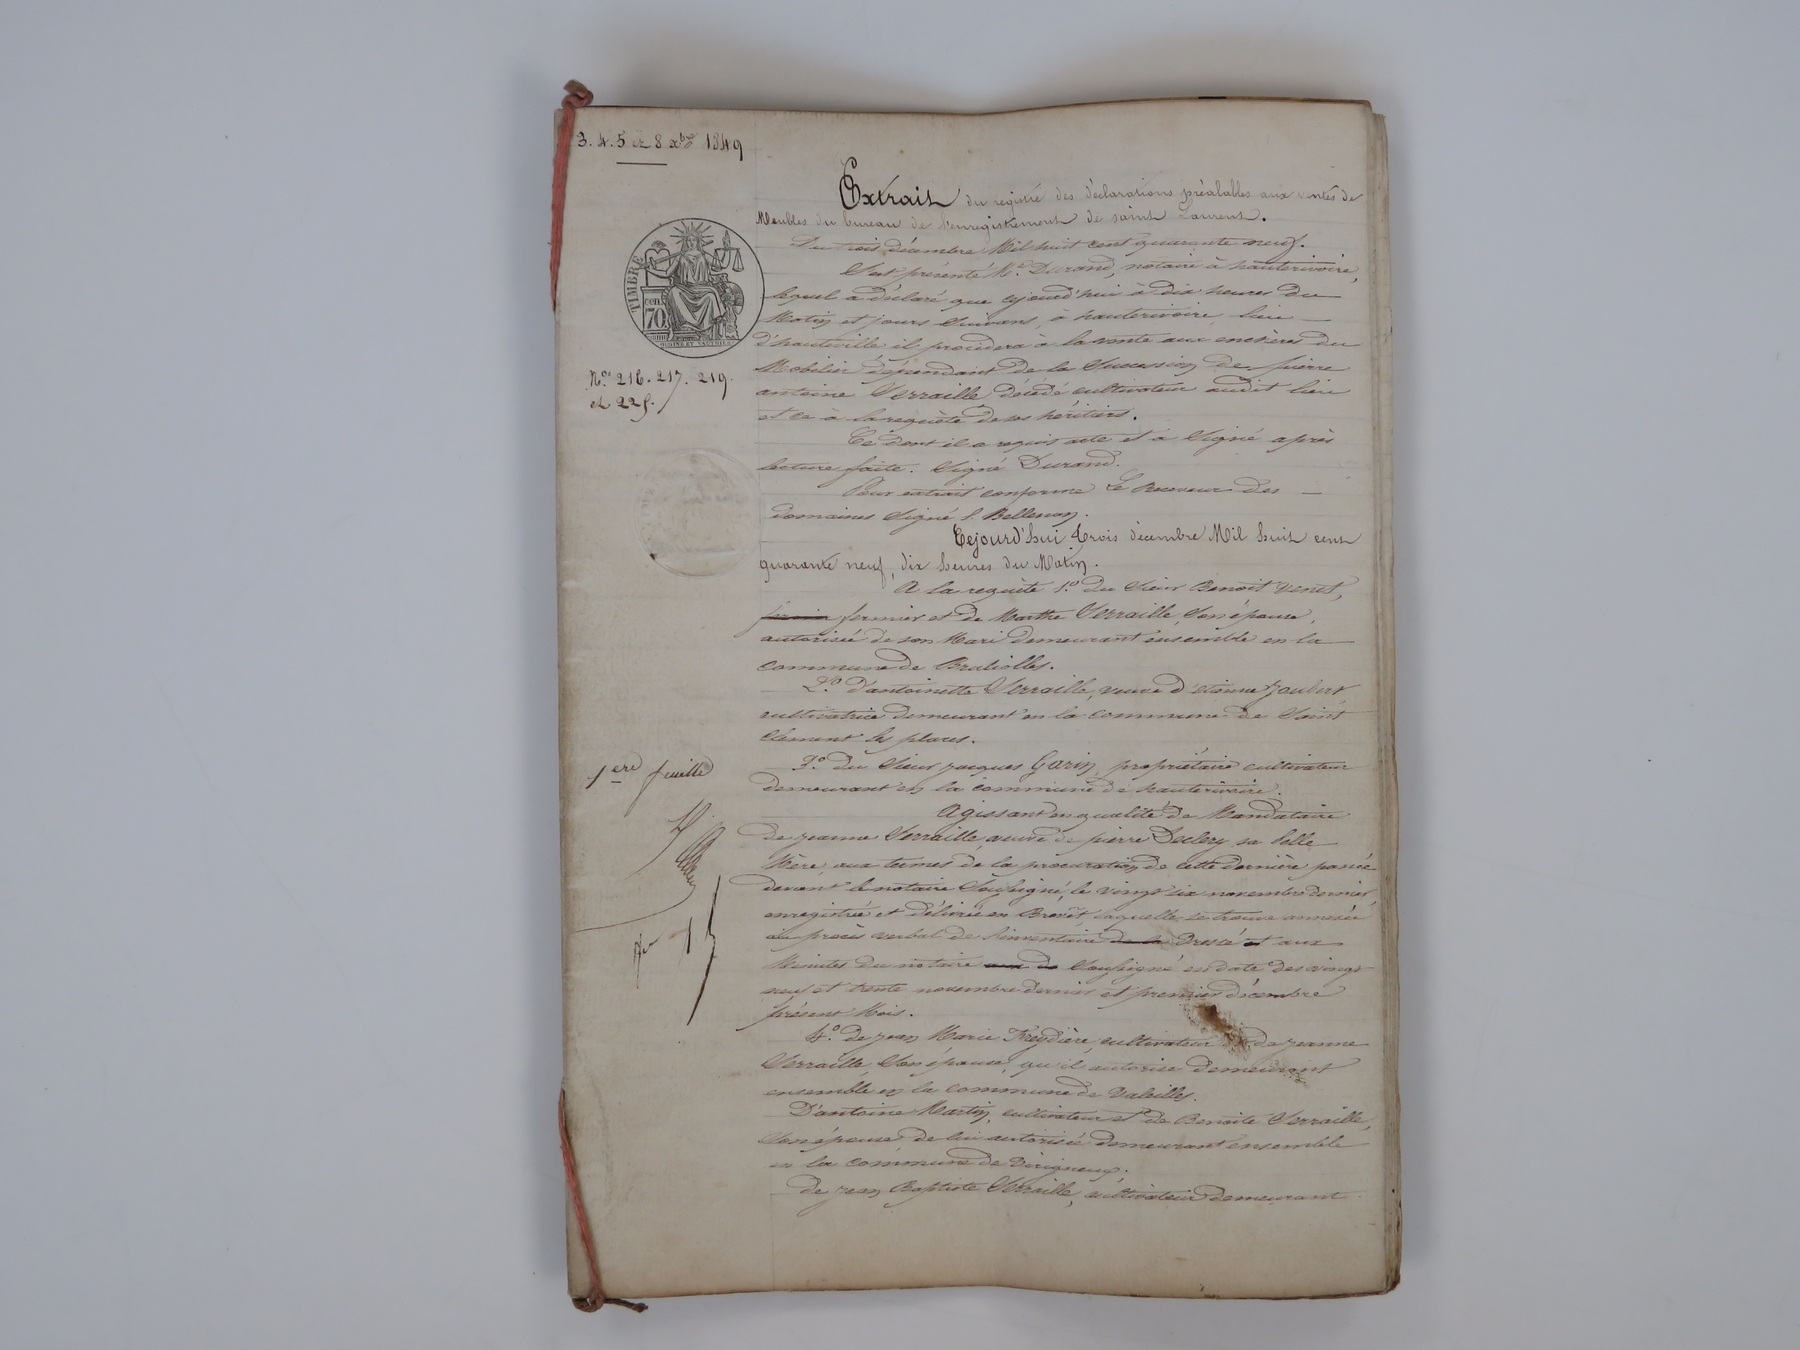 3. 4. 5 et 8 xbre 1849
Extrait du registre des déclarations préalables aux ventes de
Meubles du bureau de l'enregistrement de saint Laurent.
Du trois décembre Mil huit cent quarante neuf.
S'est présenté Me. Durand, notaire à hauterivoire,
lequel a déclaré que cejourd'hui à dix heures du
Matin et jours suivans, à hauterivoire, lieu
d'hauteville il procédera à la vente aux enchères du
Mobilier dépendant de la Succession de pierre
antoine Serraille décédé cultivateur audit lieu
et ce à la requête de ses héritiers.
Ce dont il a requis acte et a Signé après
lecture faite. Signé Durand.
Pour extrait conforme Le Receveur des
domaines Signé
TIMBRE
cen
70
Nos 216. 217. 219.
et 225.
Cejourd'hui Trois décembre Mil huit cent
quarante neuf, dix heures du Matin.
A la requête 1.o du Sieur Benoit
fermier et de Marthe Serraille, Son épouse,
autorisée de son Mari demeurant ensemble en la
commune de
2.o d'antoinette Serraille, veuve d'etienne Joubert
cultivatrice demeurant en la commune de Saint
Clément les places.
3.o du Sieur jacques Garin, propriétaire cultivateur
demeurant en la commune de hauterivoire.
Agissant en qualité de Mandataire
de jeanne Serraille, veuve de pierre sa belle
Mère, aux termes de la procuration de cette dernière passée
devant le notaire Soussigné le vingt six novembre dernier,
enregistrée et délivrée en Brevet, laquelle se trouve annexée
au procès verbal de l'inventaire de la Dressé et aux
Minutes du notaire Soussigné en date des vingt
neuf et trente novembre dernier et premier décembre
présent Mois.
1ere feuille
4.o de jean Marie cultivateur et de jeanne
Serraille, Son épouse, qu'il autorise demeurant
ensemble en la commune de Valeilles.
D'antoine Martin, cultivateur et de Benoite Serraille,
Son épouse de lui autorisée demeurant ensemble
en la commune de Virigneux.
de jean Baptiste Serraille, cultivateur demeurant